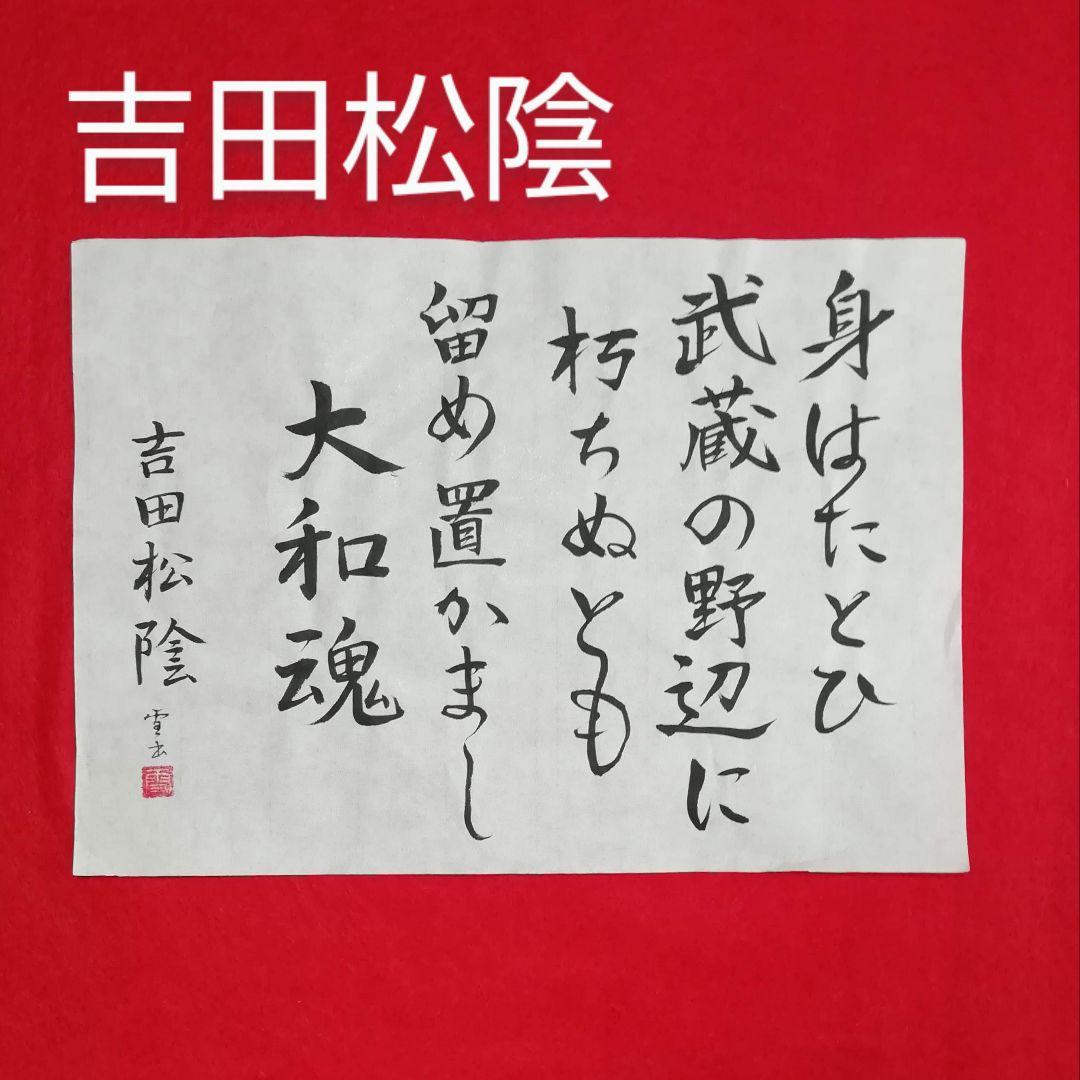 吉田松陰
身はたとひ
武蔵の野辺に
朽ちぬとも
留め置かまし
大和魂
吉田松陰